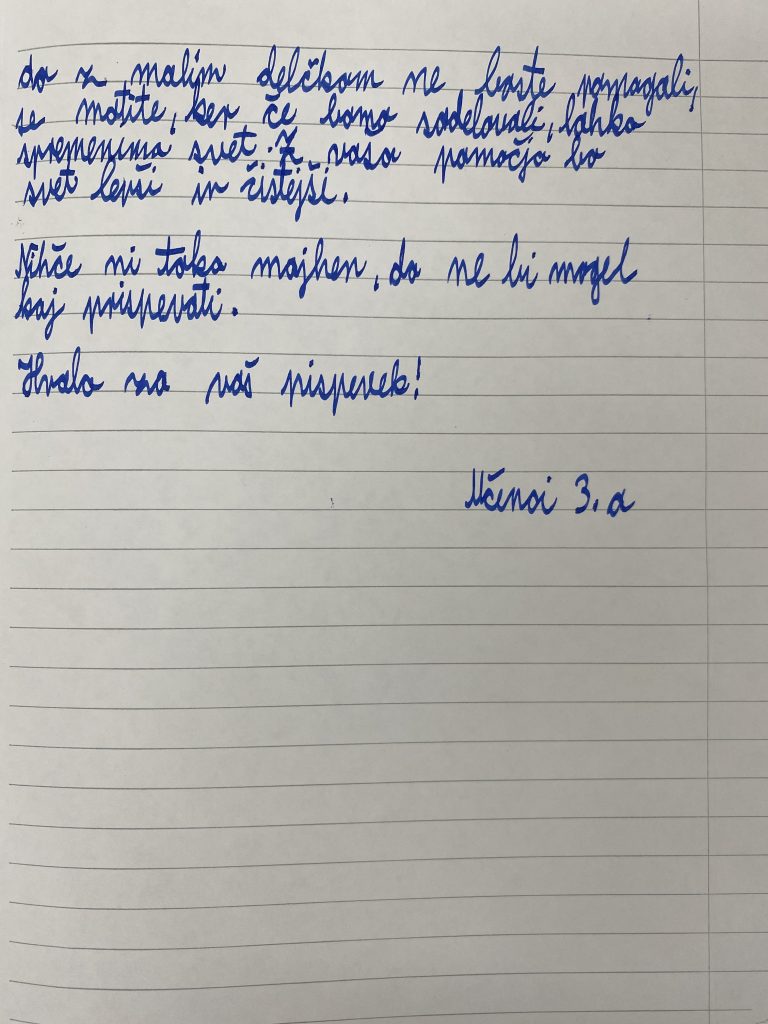 da z malim delčkom ne boste pomagali,
se motite, ker če bomo sodelovali, lahko
spremenimo svet. Z vašo pomočjo bo
svet lepši in čistejši.
Nihče ni tako majhen, da ne bi mogel
kaj prispevati.
Hvala za vaš pispevek!
Učenci 3. a